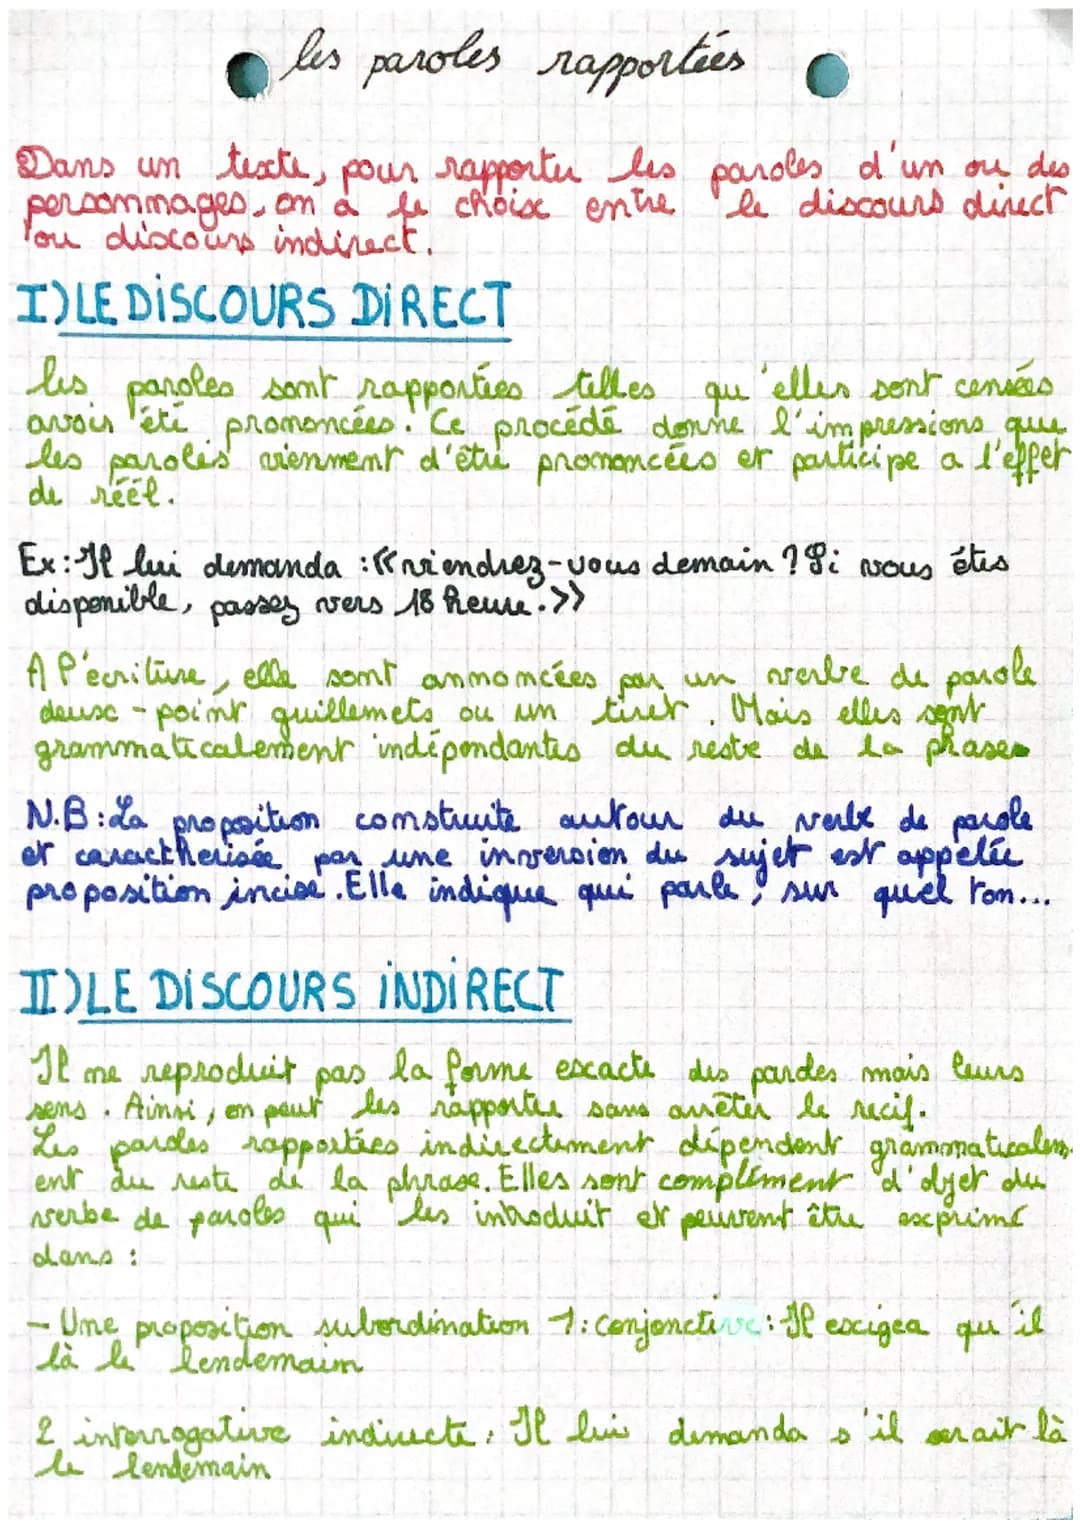 les paroles rapportées
Dans un texte, pour rapporter les paroles d'un ou des
personnages, on a le choix entre le discours direct
ou discours indirect.
I) LE DISCOURS DIRECT
les paroles sont rapportées telles qu'elles sont censées
avoir été prononcées. Ce procédé donne l'impressions que
les paroles viennent d'être prononcées et participe a l'effet
de réél.
Ex : Il lui demanda : «viendrez-vous demain ? Si vous étes
disponible, passez vers 18 heure.»
A l'écriture, elle sont annoncées par un verbe de parole
deux-point guillemets ou un tiret. Mais elles sont
grammaticalement indépendantes du reste de la phrase.
N.B : La proposition construite autour du verbe de parole
et caractherisée par une inversion du sujet est appelée
proposition incise. Elle indique qui parle, sur quel ton...
II) LE DISCOURS INDIRECT
Il ne reproduit pas la forme excacte des paroles mais leurs
sens. Ainsi, on peut les rapporter sans arrêter le recif.
Les paroles rapportées indirectement dépendent grammaticalem-
ent du reste de la phrase. Elles sont complément d'objet du
verbe de paroles qui les introduit et peuvent être exprimé
dans :
- Une proposition subordination 1: Conjonctive : Il exigea qu'il
là le lendemain
2 interrogative indirecte : Il lui demanda s'il serait là
le lendemain